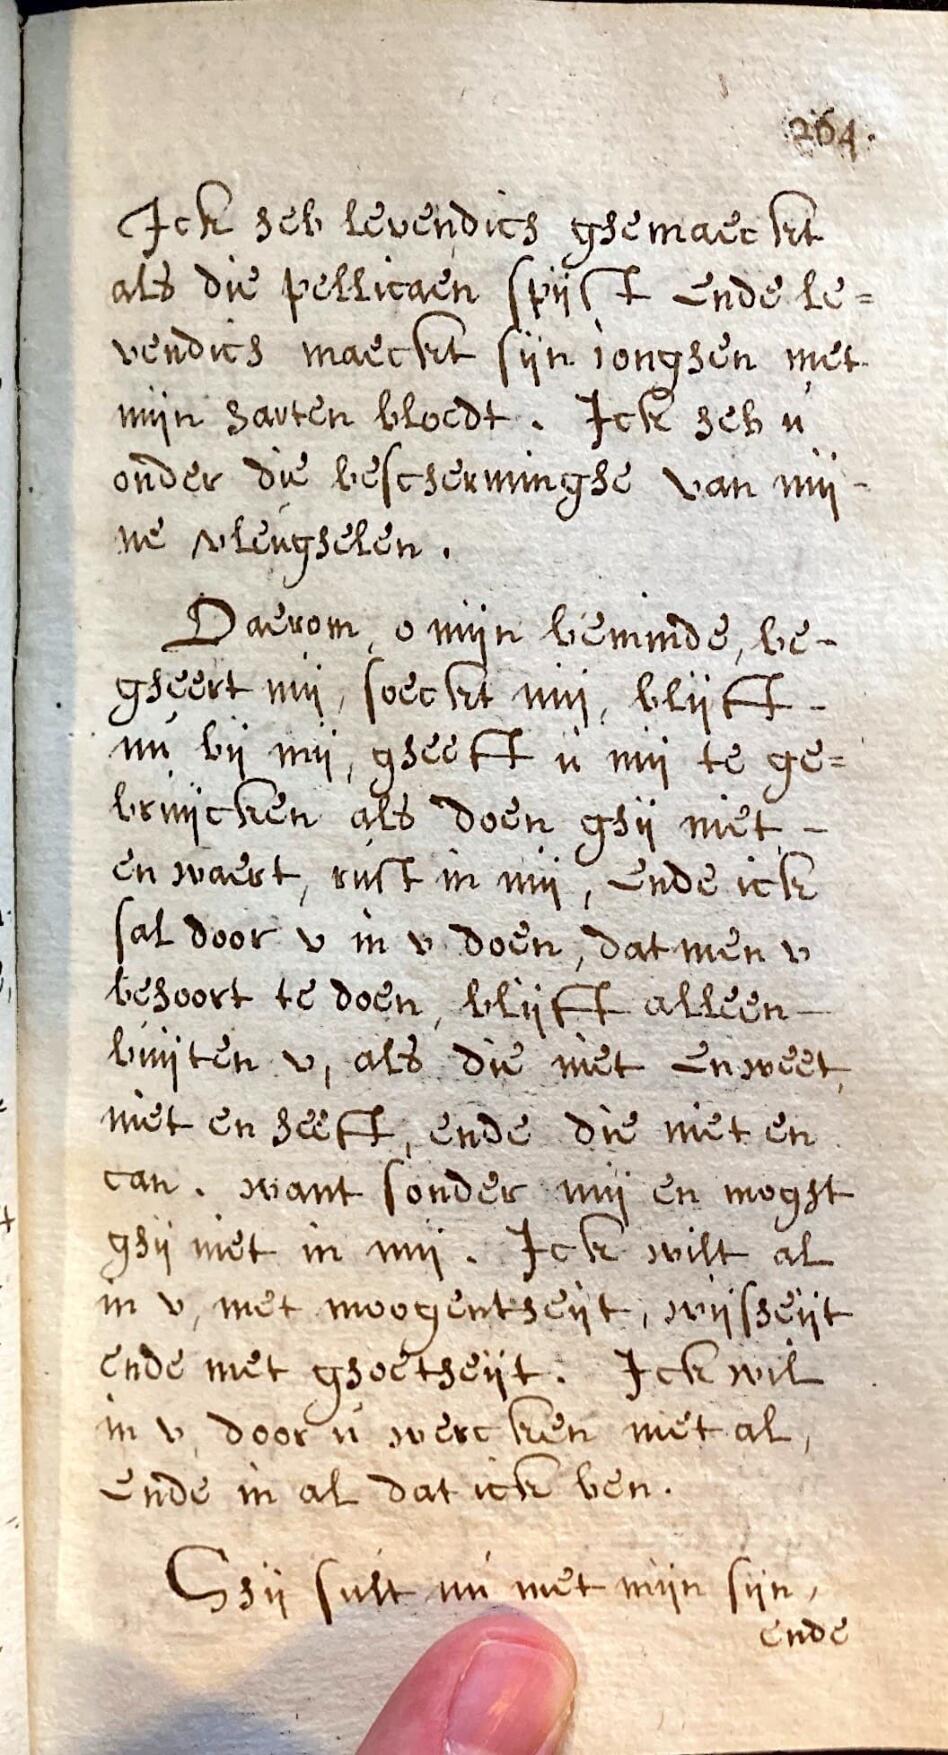 264.
Ick heb levendich ghemaeckt
als die pellicaen spijst ende le=
vendich maeckt sijn jonghen met
mijn harten bloedt. Ick heb u
onder die bescherminghe van mij-
ne vleughelen.
Daerom, o mijn beminde, be-
gheert mij, soeckt mij, blijft -
nu bij mij, gheeft u mij te ge=
bruijcken als doen ghij niet -
en waert, rust in mij, ende ick
sal door v in v doen, dat men v
behoort te doen, blijft alleen -
buijten v, als die niet en weet,
niet en heeft, ende die niet en
can. want sonder mij en moght
ghij niet in mij. Ick wilt al
in v, met moogentheijt, wijsheijt
ende met ghoetheijt. Ick wil
in v, door u wercken met al,
ende in al dat ick ben.
Ghij sult nu met mijn sijn,
ende